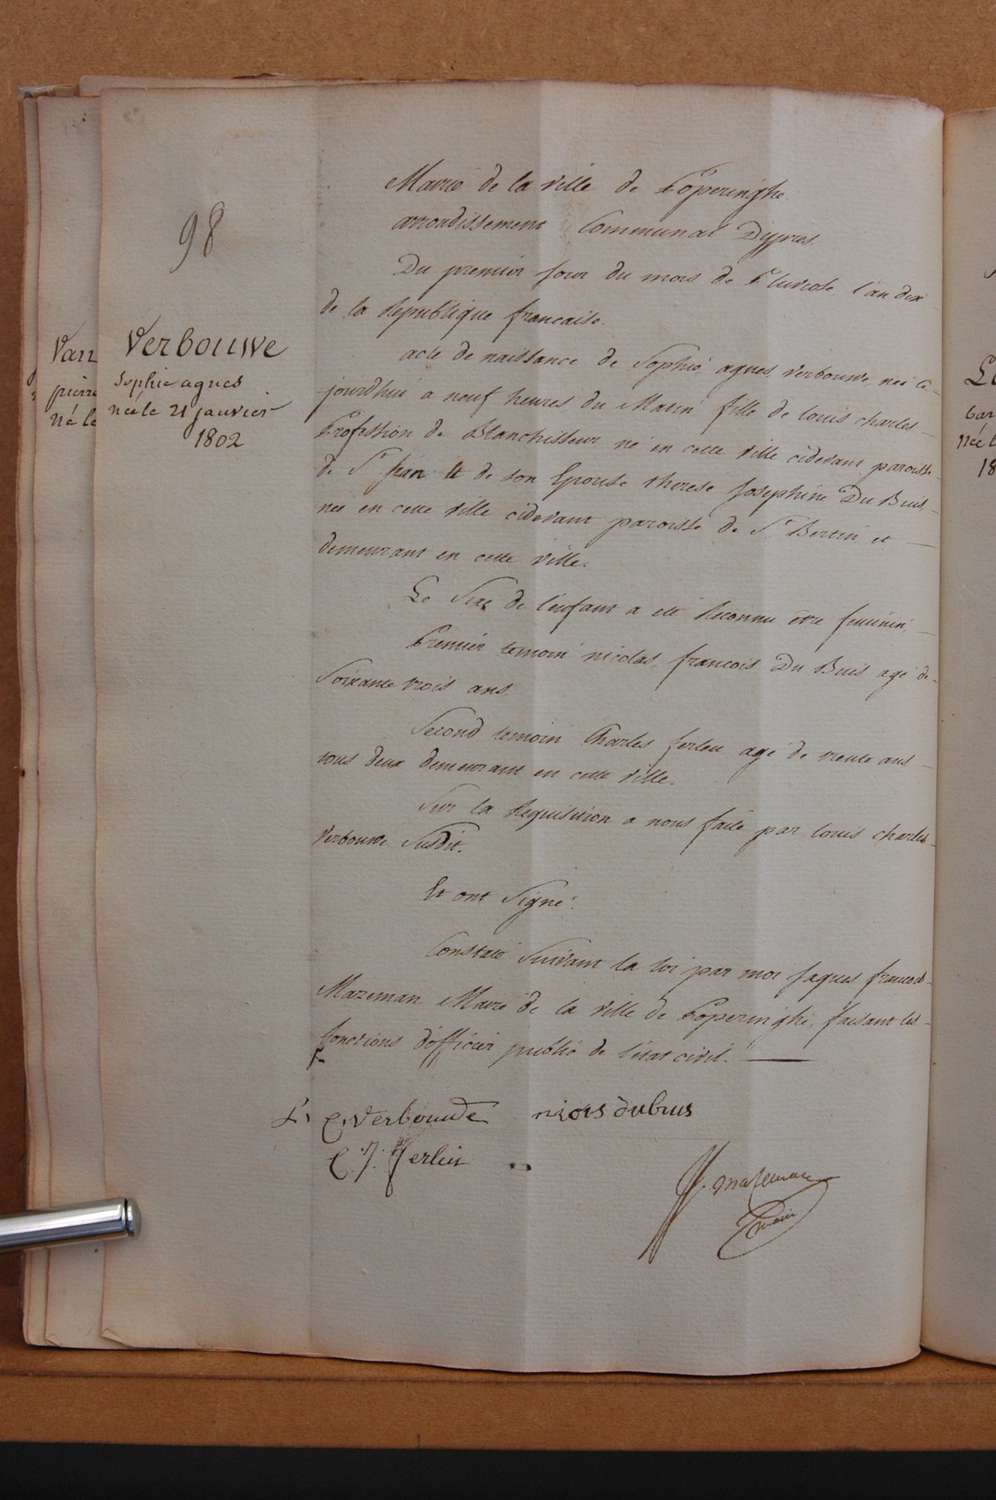 98
Verbouwe
Sophie agnes
née le 21 janvier
1802
Mairie de la ville de Poperinghe
arrondissement Communal Dypres
Du premier jour du mois de Pluviose l'an dix
de la Republique francaise.
acte de naissance de Sophie agnes verbouwe née ce
jourdhui a neuf heures du Matin fille de louis charles
Profession de Blanchisseur né en cette ville cidevant paroisse
de St jean & de son Epouse therese Josephine Du Buis
née en cette ville cidevant paroisse de St Bertin et
demeurant en cette ville.
Le Sexe de l'enfant a été Reconnu être feminin.
Premier temoin nicolas francois Du Buis agé de
Soixante trois ans
Second temoin Charles ferlin agé de trente ans
tous deux demeurant en cette ville.
Sur la Requisition a nous faite par louis charles
verbouwe Susdit.
Et ont Signé.
Constaté Suivant la loi par moi jaques francois
Mazeman Maire de la ville de Poperinghe, faisant les
fonctions d'officier public de l'état civil.
L, C, verbouwe
dubuis
C. J. ferlin
J f. mazeman
maire
Van
pierre
Né le
Née l
18